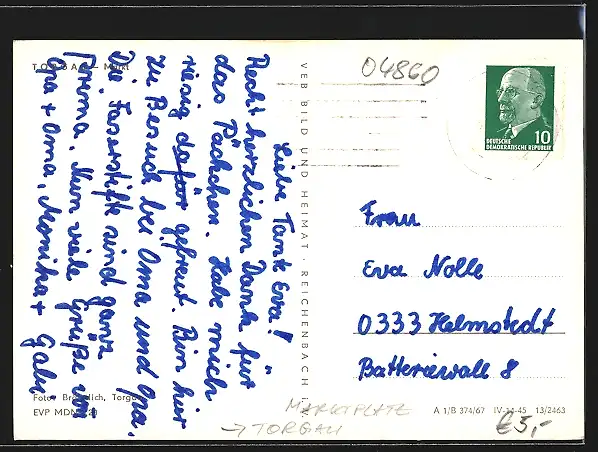 TORGAU – Markt
Liebe Tante Eva!
Recht herzlichen Dank für
das Päckchen. Habe mich
riesig dafür gefreut. Bin hier
zu Besuch bei Oma und Opa.
Die Faserstifte sind ganz
prima. Nun viele Grüße von
Opa + Oma, Monika + Gabi.
Foto: Torgau
EVP MDN
VEB BILD UND HEIMAT · REICHENBACH i. V.
04860
10
DEUTSCHE
DEMOKRATISCHE REPUBLIK
Frau
Eva Nolle
0333 Helmstedt
Batteriewall 8
A 1/B 374/67 IV-14-45 13/2463
MARKTPLATZ
→ TORGAU
€3,-